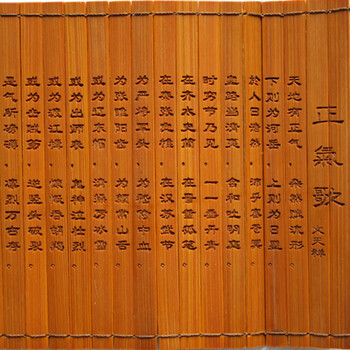 正氣歌
文天祥
天地有正气 杂然赋流形
下则为河岳 上则为日星
於人曰浩然 沛乎塞苍冥
皇路当清夷 含和吐明庭
时穷节乃见 一一垂丹青
在齐太史简 在晋董狐笔
在秦张良椎 在汉苏武节
为严将军头 为嵇侍中血
为张睢阳齿 为颜常山舌
或为辽东帽 清操厉冰雪
或为出师表 鬼神泣壮烈
或为渡江楫 慷慨吞胡羯
或为击贼笏 逆竖头破裂
是气所磅礴 凛烈万古存